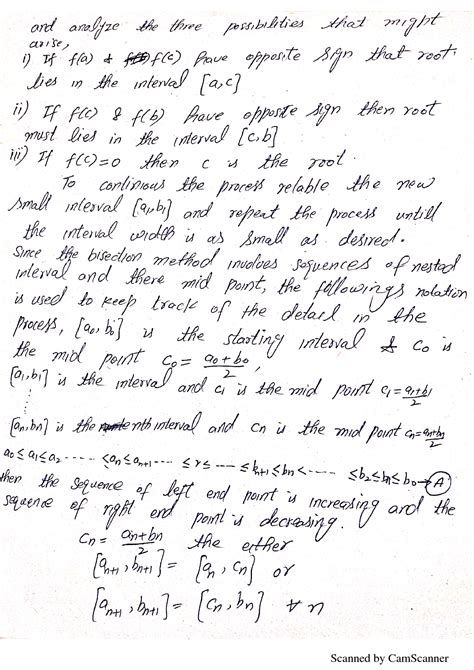 and analyze the three possibilities that might
arise,
i) If f(a) & f(c) have opposite sign that root
lies in the interval [a,c]
ii) If f(c) & f(b) have opposite sign then root
must lies in the interval [c,b]
iii) If f(c)=0 then c is the root.
To continious the process relable the new
small interval [a₁,b₁] and repeat the process untill
the interval width is as small as desired.
Since the bisection method involves sequences of nested
interval and there mid point, the followings notation
is used to keep track of the detail in the
process, [a₀, b₀] is the starting interval & c₀ is
the mid point c₀ = a₀+b₀/2,
[a₁,b₁] is the interval and c₁ is the mid point c₁ = a₁+b₁/2
[aₙ,bₙ] is the nth interval and cₙ is the mid point cₙ = aₙ+bₙ/2
a₀ ≤ a₁ ≤ a₂ ---- ≤ aₙ ≤ aₙ₊₁ ---- ≤ r ≤ --- ≤ bₙ₊₁ ≤ bₙ ≤ ---- ≤ b₂ ≤ b₁ ≤ b₀ → (A)
then the sequence of left end point is increasing and the
sequence of right end point is decreasing.
cₙ = aₙ+bₙ/2 the either
[aₙ₊₁, bₙ₊₁] = [aₙ, cₙ] or
[aₙ₊₁, bₙ₊₁] = [cₙ, bₙ] ∀ n
Scanned by CamScanner